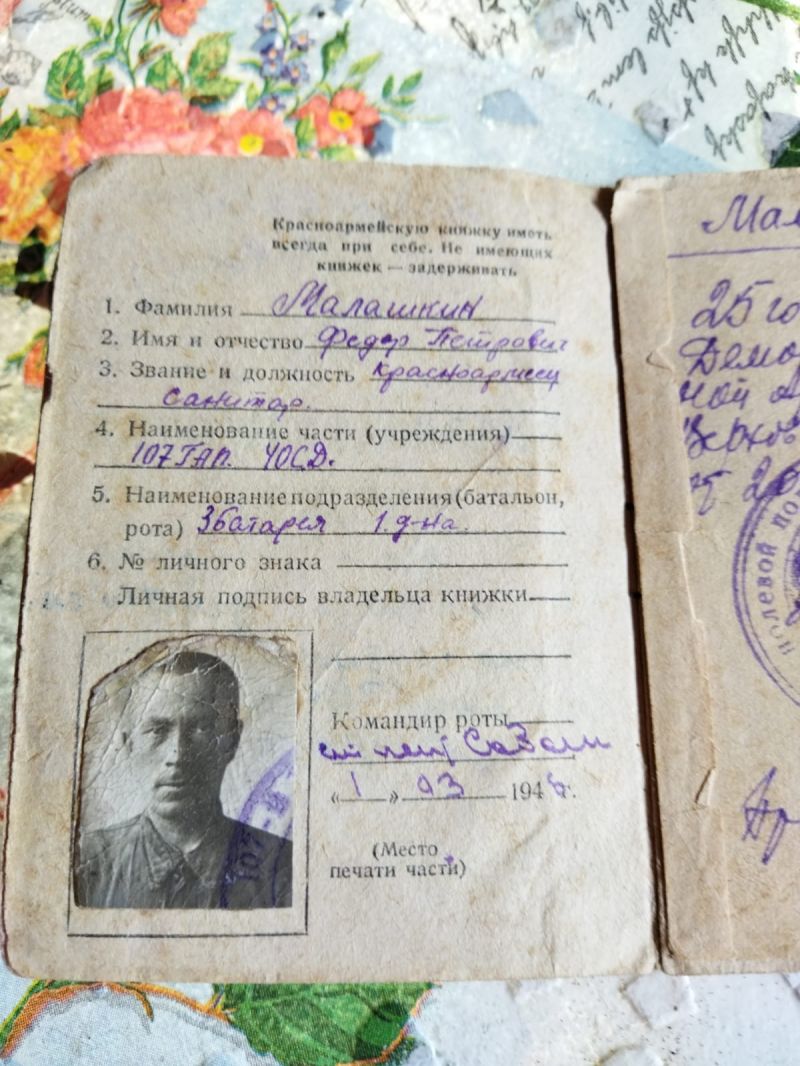 Красноармейскую книжку иметь
всегда при себе. Не имеющих
книжек — задерживать
1. Фамилия Малашкин
2. Имя и отчество Федор Петрович
3. Звание и должность Красноармеец
санитар.
4. Наименование части (учреждения)
107 ГАП. 40СД.
5. Наименование подразделения (батальон,
рота) 3 батарея 1 д-на.
6. № личного знака
Личная подпись владельца книжки
Командир роты
«1» 03 1946 г.
(Место
печати части)
Мал
25 го
Демо
ной
Верхов
20
полевой по